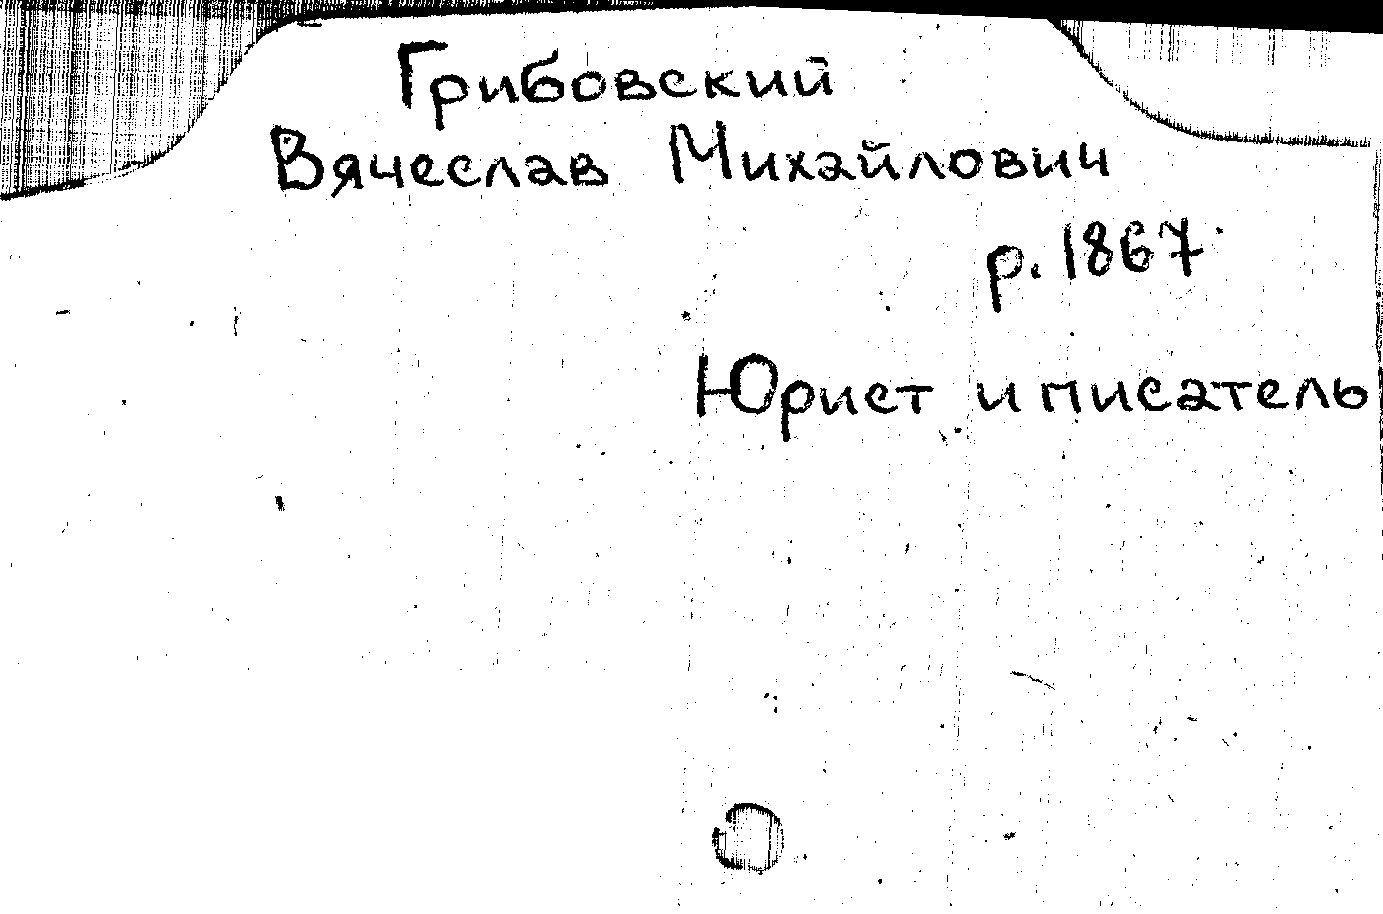 Грибовский
Вячеслав Михайлович
р. 1867
Юрист и писатель